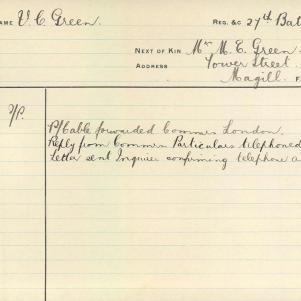 NAME V. C. Green. REG. &C 27th Bat
NEXT OF KIN Mrs M. E. Green
ADDRESS Tower Street.
Magill. F
P/P. P/Cable forwarded Commrs London.
Reply from Commrs Particulars telephoned
Letter sent Inquirer confirming telephone a